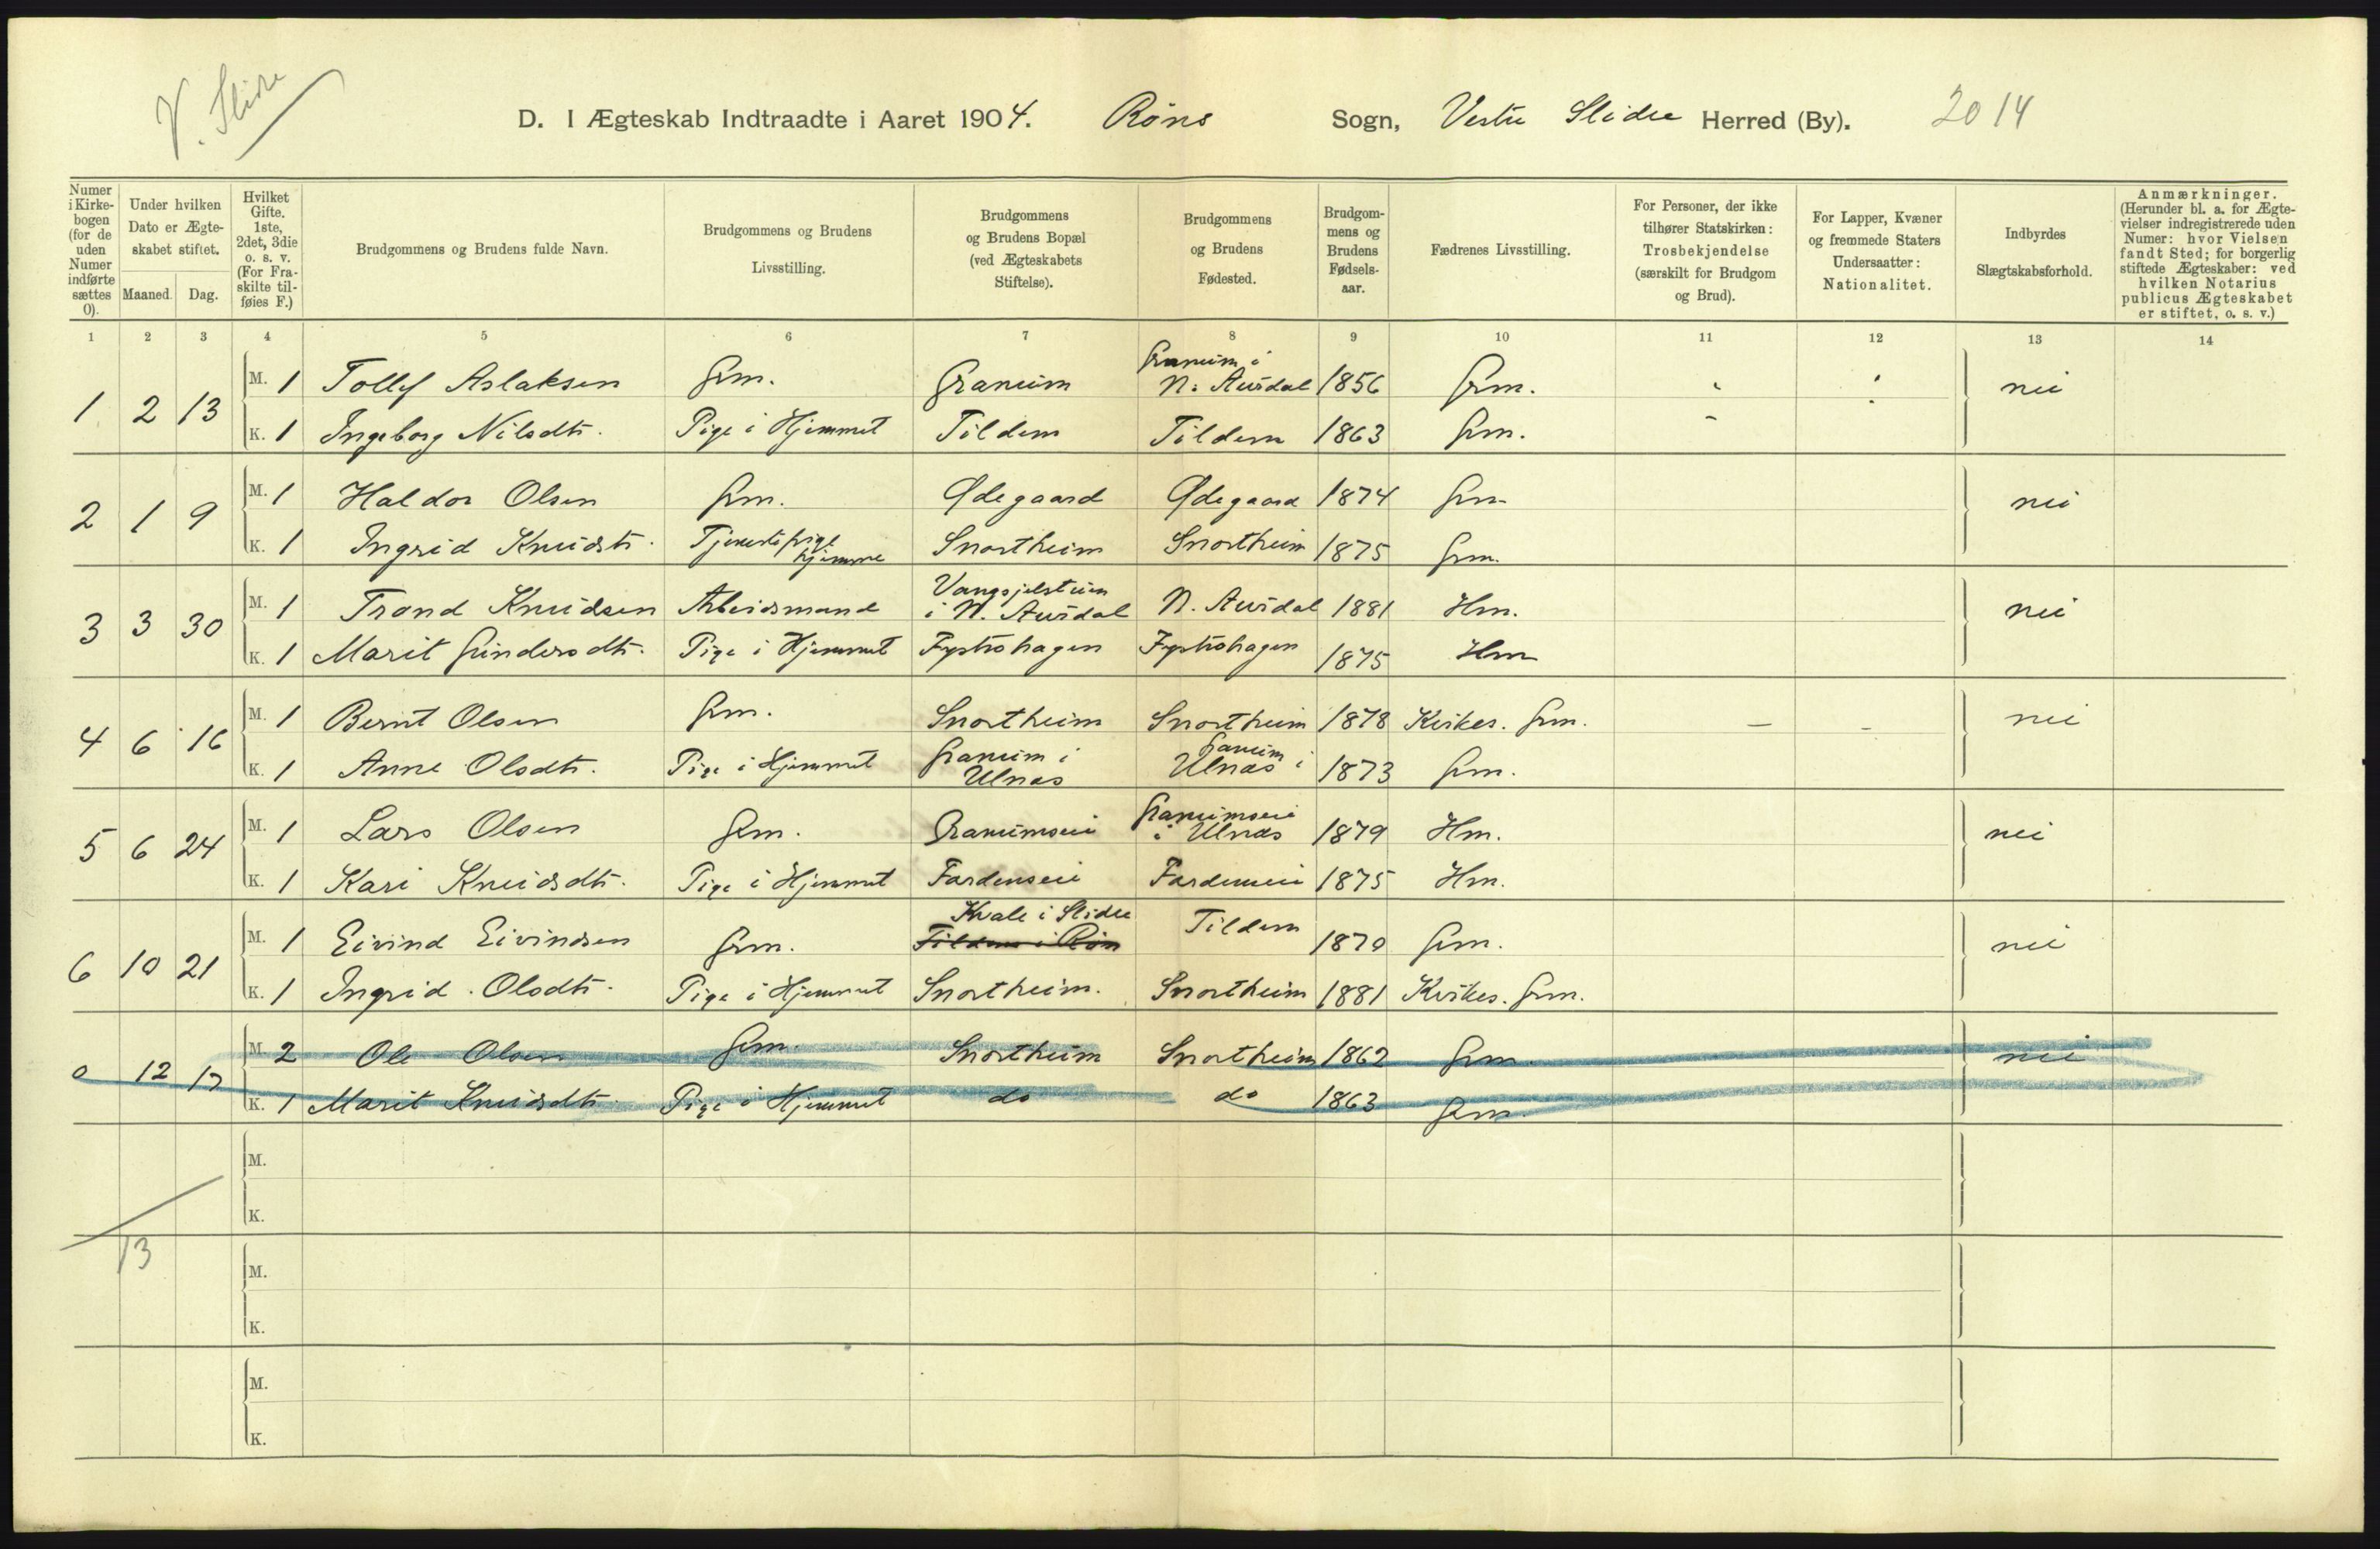 V. Slidre
D. I Ægteskab Indtraadte i Aaret 1904. Røns Sogn, Vestre Slidre Herred (By). 2014
Numer i Kirkebogen (for de uden Numer indførte sættes 0).
Under hvilken Dato er Ægteskabet stiftet.
Maaned. Dag.
Hvilket Gifte. 1ste, 2det, 3die o. s. v. (For Fraskilte tilføies F.)
Brudgommens og Brudens fulde Navn.
Brudgommens og Brudens Livsstilling.
Brudgommens og Brudens Bopæl (ved Ægteskabets Stiftelse).
Brudgommens og Brudens Fødested.
Brudgommens og Brudens Fødselsaar.
Fædrenes Livsstilling.
For Personer, der ikke tilhører Statskirken: Trosbekjendelse (særskilt for Brudgom og Brud).
For Lapper, Kvæner og fremmede Staters Undersaatter: Nationalitet.
Indbyrdes Slægtskabsforhold.
Anmærkninger. (Herunder bl. a. for Ægtevielser indregistrerede uden Numer: hvor Vielsen fandt Sted; for borgerlig stiftede Ægteskaber: ved hvilken Notarius publicus Ægteskabet er stiftet, o. s. v.)
1 2 3 4 5 6 7 8 9 10 11 12 13 14
1 2 13 M. 1 Tollef Aslaksen Grm. Graneim Graneim i N. Aurdal 1856 Grm. nei
K. 1 Ingeborg Nilsdtr. Pige i Hjemmet Tildem Tildem 1863 Grm.
2 1 9 M. 1 Haldor Olsen Grm. Ødegaard Ødegaard 1874 Grm nei
K. 1 Ingrid Knudsdtr. Tjenestepige hjemme Snortheim Snortheim 1875 Grm.
3 3 30 M. 1 Trond Knudsen Arbeidsmand i N. Aurdal N. Aurdal 1881 Hm. nei
K. 1 Marit Gundersdtr. Pige i Hjemmet Fystrohagen Fystrohagen 1875 Hm
4 6 16 M. 1 Bernt Olsen Grm. Snortheim Snortheim 1878 Kirkes. Grm. – – nei
K. 1 Anne Olsdtr. Pige i Hjemmet Graneim i Ulnæs Graneim i Ulnæs 1873 Grm.
5 6 24 M. 1 Lars Olsen Grm. Graneimseie Graneimseie i Ulnæs 1879 Hm. nei
K. 1 Kari Knudsdtr. Pige i Hjemmet Fardenseie Fardenseie 1875 Hm.
6 10 21 M. 1 Eivind Eivindsen Grm. Kvale i Slidre Tildem i Røn Tildem 1870 Grm. nei
K. 1 Ingrid Olsdtr. Pige i Hjemmet Snortheim. Snortheim 1881 Kirkes. Grm.
0 12 17 M. 2 Ole Olsen Grm. Snortheim Snortheim 1862 Grm. nei
K. 1 Marit Knudsdtr. Pige i Hjemmet do do 1863 Grm.
M.
K.
13
M.
K.
M.
K.